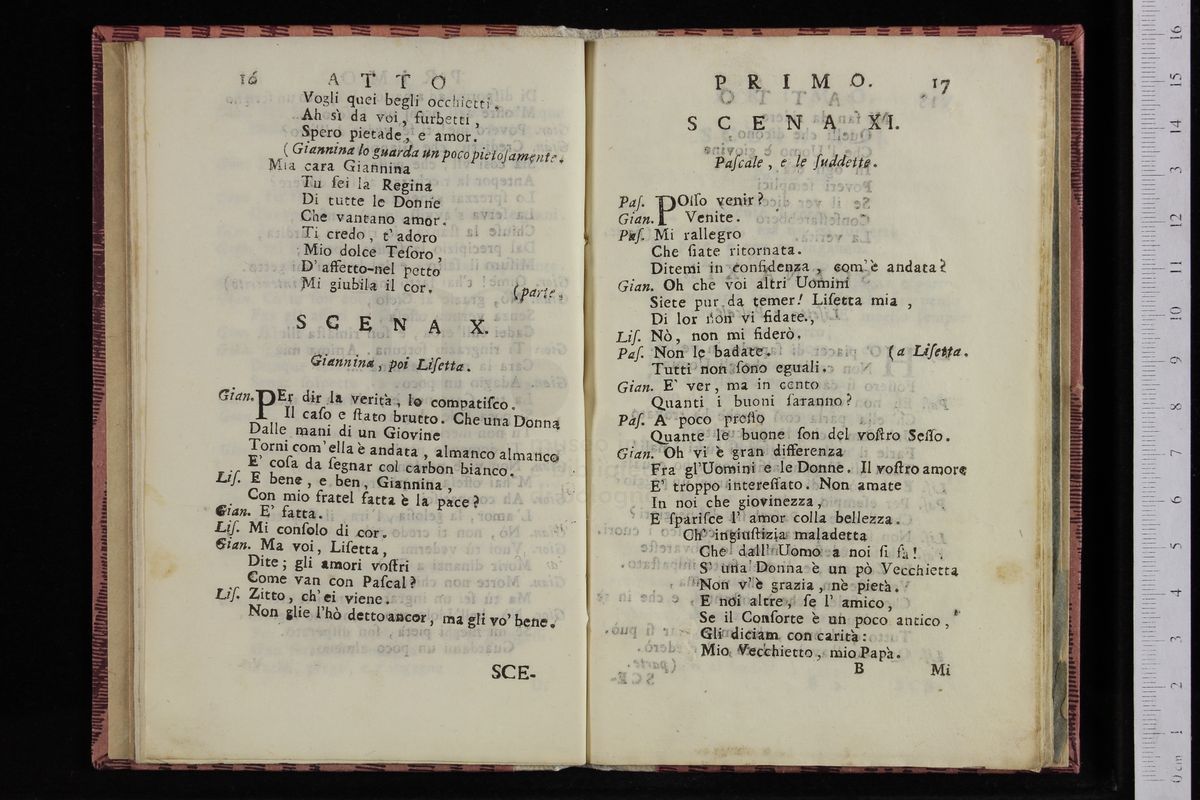 16 ATTO
Vogli quei begli occhietti.
Ah sì da voi, furbetti,
Spero pietade, e amor.
(Giannina lo guarda un poco pietoſamente.
Mia cara Giannina
Tu ſei la Regina
Di tutte le Donne
Che vantano amor.
Ti credo, t'adoro
Mio dolce Teſoro,
D'affetto-nel petto
Mi giubila il cor. (parte.
SCENA X.
Giannina, poi Liſetta.
Gian. PEr dir la verità, lo compatiſco.
Il caſo e ſtato brutto. Che una Donna
Dalle mani di un Giovine
Torni com'ella è andata, almanco almanco
E' coſa da ſegnar col carbon bianco.
Liſ. E bene, e ben, Giannina,
Con mio fratel fatta è la pace?
Gian. E' fatta.
Liſ. Mi conſolo di cor.
Gian. Ma voi, Liſetta,
Dite; gli amori voſtri
Come van con Paſcal?
Liſ. Zitto, ch'ei viene.
Non glie l'hò detto ancor, ma gli vo' bene.
SCE-
PRIMO. 17
SCENA XI.
Paſcale, e le ſuddette.
Paſ. POſſo venir?
Gian. Venite.
Paſ. Mi rallegro
Che ſiate ritornata.
Ditemi in confidenza, com'è andata?
Gian. Oh che voi altri Uomini
Siete pur da temer! Liſetta mia,
Di lor non vi fidate.
Liſ. Nò, non mi fiderò.
Paſ. Non le badate. (a Liſetta.
Tutti non ſono eguali.
Gian. E' ver, ma in cento
Quanti i buoni ſaranno?
Paſ. A poco preſto
Quante le buone ſon del voſtro Seſſo.
Gian. Oh vi è gran differenza
Fra gl'Uomini e le Donne. Il voſtro amore
E' troppo intereſſato. Non amate
In noi che giovinezza,
E ſpariſce l'amor colla bellezza.
Ch' ingiuſtizia maladetta
Che dall'Uomo a noi ſi fa!
S' una Donna è un pò Vecchietta
Non v'è grazia, nè pietà.
E noi altre, ſe l' amico,
Se il Conſorte è un poco antico,
Gli diciam con carità:
Mio Vecchietto, mio Papà.
B Mi
0 cm 1 2 3 4 5 6 7 8 9 10 11 12 13 14 15 16